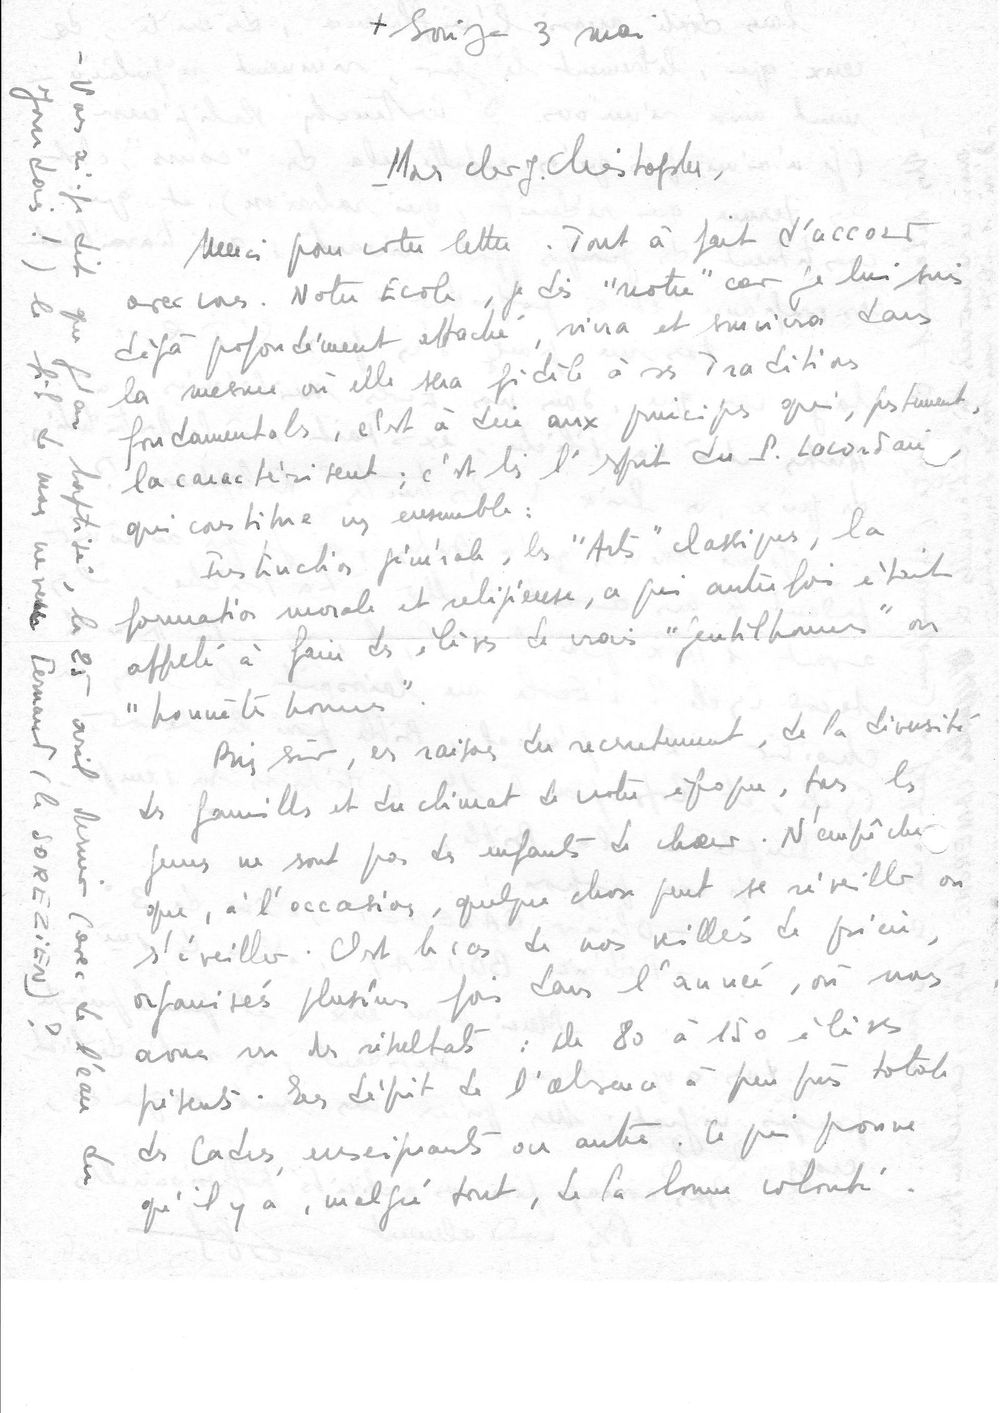 + Sorèze 3 mai
Mon cher J. Christophe,
Merci pour votre lettre. Tout à fait d'accord
avec vous. Notre Ecole, je dis "notre" car je lui suis
déjà profondément attaché, vivra et survivra dans
la mesure où elle sera fidèle à ses Traditions
fondamentales, c'est à dire aux principes qui, justement,
la caractérisent ; c'est là l'esprit du P. Lacordaire,
qui constitue un ensemble :
Instruction générale, les "Arts" classiques, la
formation morale et religieuse, ce qui autrefois était
appelé à faire des élèves de vrais "gentilhommes" ou
"honnêtes hommes".
Bien sûr, en raison du recrutement, de la diversité
des familles et du climat de notre époque, tous les
jeunes ne sont pas des enfants de chœur. N'empêche
que, à l'occasion, quelque chose peut se réveiller ou
s'éveiller. C'est le cas de nos veillées de prière,
organisées plusieurs fois dans l'année, où nous
avons vu des résultats : de 80 à 150 élèves
présents. En dépit de l'absence à peu près totale
des Cadres, enseignants ou autre. Ce qui prouve
qu'il y a, malgré tout, de la bonne volonté.
- Vous ai-je dit que j'ai baptisé, le 25 avril dernier (avec de l'eau du
Jourdain !) le fils de mon neveu Fernand (le SOREZIEN) ?